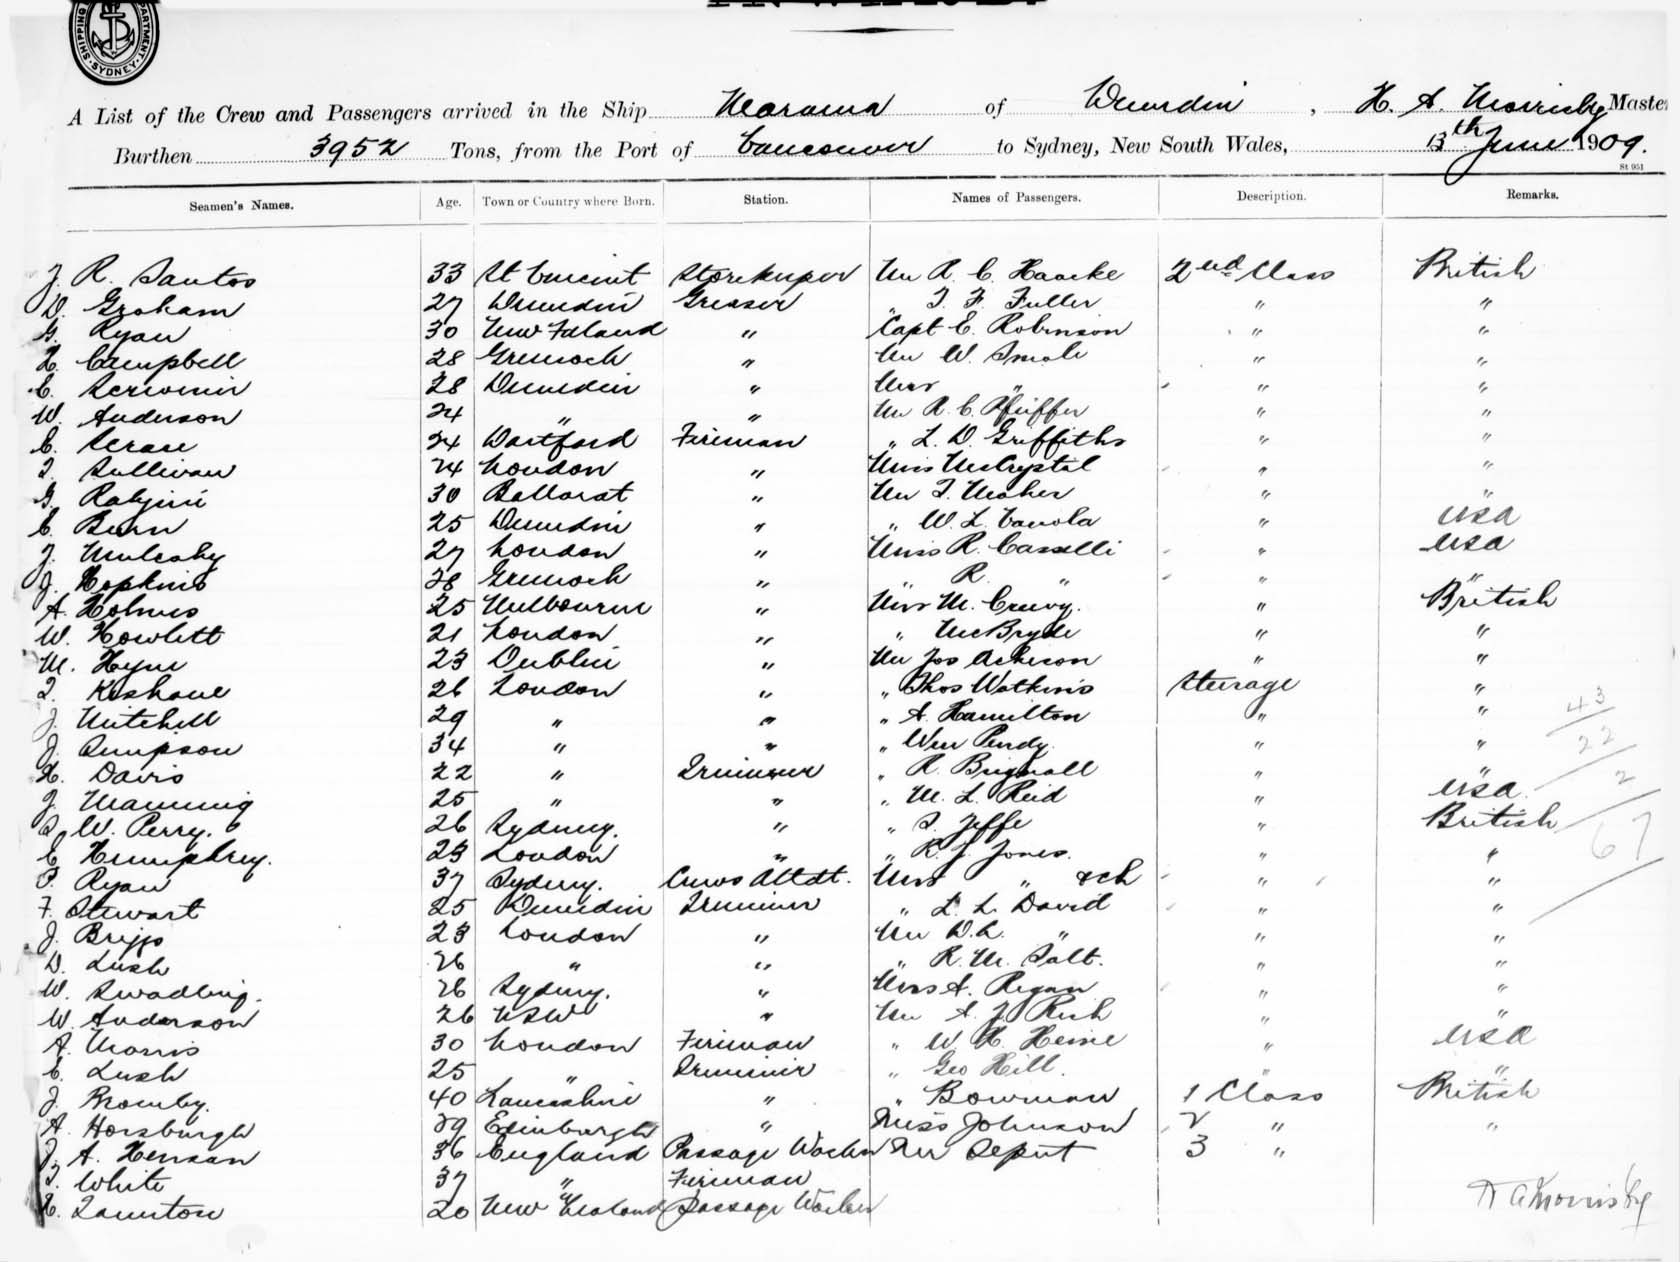 SHIPPING DEPARTMENT SYDNEY
A List of the Crew and Passengers arrived in the Ship Marama of Dunedin, H. A. Morrisby Master
Burthen 3952 Tons, from the Port of Vancouver to Sydney, New South Wales, 13th June 1909.
St 951
Seamen's Names. Age. Town or Country where Born. Station. Names of Passengers. Description. Remarks.
J. R. Santos 33 St Vincent Storekeeper Mr R. C. Haacke 2nd Class British
D. Graham 27 Dunedin Greaser " T. F. Fuller " "
G. Ryan 30 " Capt E. Robinson " "
Campbell 28 Greenock " Mr W. Smale " "
C. 28 Dunedin " Mrs " " "
W. Anderson 24 " " Mr R. C. Pfeiffer " "
C. 24 Dartford Fireman " L. D. Griffiths " "
T. Sullivan 24 London " Miss McCrystal " "
G. 30 Ballarat " Mr T. Meaher " "
C. Burn 25 Dunedin " " W. L. Canola " USA
J. Mulcahy 27 London " Miss R. Casselli " USA
J. Hopkins 28 Greenock " " R. " " "
A. Holmes 25 Melbourne " Mrs M. Creevy. " British
W. Howlett 21 London " " McBryde " "
M. Hyne 23 Dublin " Mr Jos Acheson " "
T. 26 London " " Thos Watkins Steerage "
J. Mitchell 29 " " " A. Hamilton " "
J. Simpson 34 " " " Wm Pendy. " "
H. Davis 22 " Trimmer " R. Brignall " "
J. Manning 25 " " " M. L. Reid " USA.
S. W. Perry. 26 Sydney. " " T. Jeffe " British
E. Humphrey. 23 London " " R. J. Jones. " "
P. Ryan 37 Sydney. Crews Attdt. Mrs " & ch " "
F. Stewart 25 Dunedin Trimmer " L. L. David " "
J. Briggs 23 London " Mr D. L. " " "
D. Lush 26 " " " R. M. Salt. " "
W. Swadling. 26 Sydney. " Mrs A. Regan " "
W. Anderson 26 NSW " Mr A. J. Rich " "
A. Morris 30 London Fireman " W. H. Heine " USA
C. Lush 25 " Trimmer " Geo Hill. " "
J. Bromby. 40 Lancashire " " Bowman 1 Class British
A. Horsburgh 29 Edinburgh " Miss Johnson 2 " "
J. A. Henson 36 England Passage Worker Mr Seput 3 "
T. White 37 " Fireman
E. Taunton 20 New Zealand Passage Worker
43
22
2
67
H A Morrisby